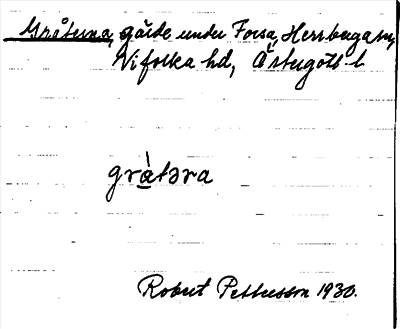 Gråterna, gärde under Forsa, Herrberga sn,
Vifolka hd, Östergötl. l.
gràtəra
Robert Pettersson 1930.